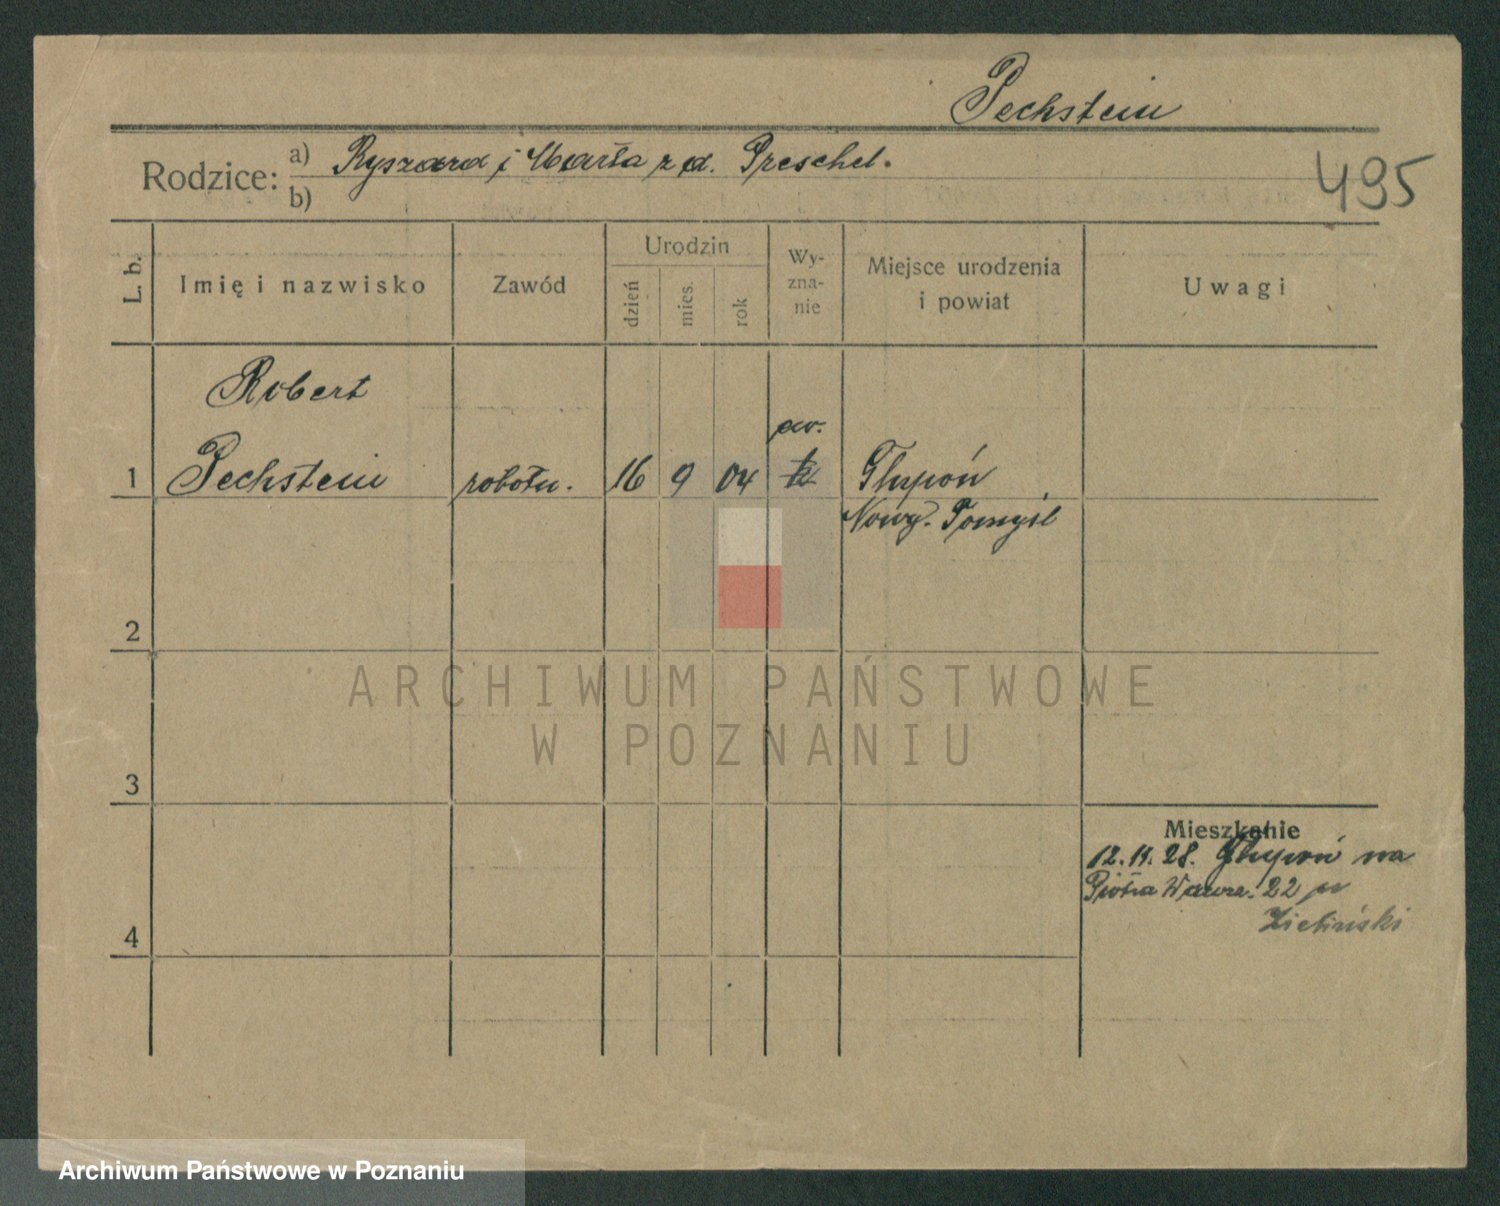 Pechstein
Rodzice: a) Ryszard i Marta z d. Preschel.
b)
495
L. b.
Imię i nazwisko
Zawód
Urodzin
dzień
mies.
rok
Wy-
zna-
nie
Miejsce urodzenia
i powiat
Uwagi
Robert
ew.
1 Pechstein robotn. 16 9 04 Głupoń
Nowy-Tomyśl
2
ARCHIWUM PAŃSTWOWE
W POZNANIU
3
Mieszkanie
12.11.28. Głupoń na
Piotra Wawrz. 22
Zieliński
4
Archiwum Państwowe w Poznaniu